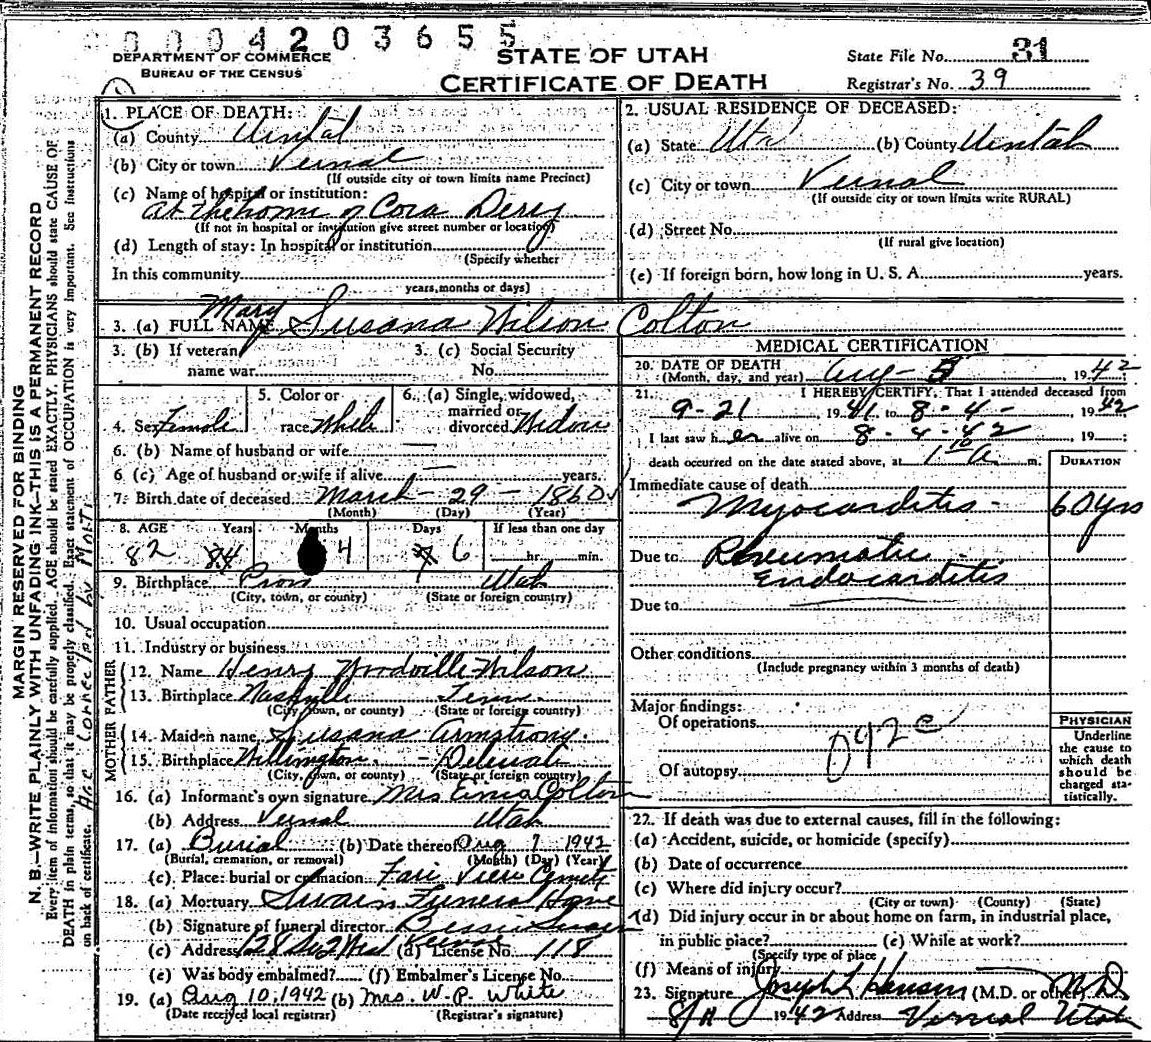 0 0 0 4 2 0 3 6 5 5
DEPARTMENT OF COMMERCE
BUREAU OF THE CENSUS
STATE OF UTAH
CERTIFICATE OF DEATH
State File No. 31
Registrar's No. 39
MARGIN RESERVED FOR BINDING
N. B.—WRITE PLAINLY WITH UNFADING INK—THIS IS A PERMANENT RECORD
Every item of information should be carefully supplied. AGE should be stated EXACTLY. PHYSICIANS should state CAUSE OF
DEATH in plain terms, so that it may be properly classified. Exact statement of OCCUPATION is very important. See Instructions
on back of certificate. Age Corrected by Mort.
1. PLACE OF DEATH:
(a) County Uintah
(b) City or town Vernal
(If outside city or town limits name Precinct)
(c) Name of hospital or institution:
At the home of Cora
(If not in hospital or institution give street number or location)
(d) Length of stay: In hospital or institution
(Specify whether
In this community
years, months or days)
2. USUAL RESIDENCE OF DECEASED:
(a) State (b) County Uintah
(c) City or town Vernal
(If outside city or town limits write RURAL)
(d) Street No.
(If rural give location)
(e) If foreign born, how long in U. S. A. years.
3. (a) FULL NAME Mary Susana Wilson Colton
3. (b) If veteran
name war
3. (c) Social Security
No.
4. Sex Female
5. Color or
race White
6. (a) Single, widowed,
married or
divorced Widow
6. (b) Name of husband or wife —
6 (c) Age of husband or wife if alive — years.
7. Birth date of deceased March - 29 - 1860
(Month) (Day) (Year)
8. AGE Years Months Days If less than one day
82 84 4 6 hr. min.
9. Birthplace Provo Utah
(City, town, or county) (State or foreign country)
10. Usual occupation
11. Industry or business
FATHER
12. Name Henry Woodville Wilson
13. Birthplace Nashville Tenn.
(City, town, or county) (State or foreign country)
MOTHER
14. Maiden name Susana Armstrong.
15. Birthplace Willmington -
(City, town, or county) (State or foreign country)
16. (a) Informant's own signature Mrs Colton
(b) Address Vernal Utah
17. (a) Burial (b) Date thereof Aug 7 1942
(Burial, cremation, or removal) (Month) (Day) (Year)
(c) Place: burial or cremation Fair View
18. (a) Mortuary Swain Funeral Home
(b) Signature of funeral director Bessie Swain
(c) Address 128 (d) License No. 118
(e) Was body embalmed? (f) Embalmer's License No.
19. (a) Aug 10, 1942 (b) Mrs. W. P. White
(Date received local registrar) (Registrar's signature)
MEDICAL CERTIFICATION
20. DATE OF DEATH
(Month, day, and year) Aug - 5, 1942
21. I HEREBY CERTIFY, That I attended deceased from
9-21, 1941 to 8-4-, 1942
I last saw her alive on 8-4-42, 19 ;
death occurred on the date stated above, at 1 10 a m.
DURATION
Immediate cause of death
Myocarditis - 60 yrs
Due to Rheumatic -
Endocarditis
Due to
Other conditions
(Include pregnancy within 3 months of death)
Major findings:
Of operations
092c
Of autopsy
PHYSICIAN
Underline
the cause to
which death
should be
charged sta-
tistically.
22. If death was due to external causes, fill in the following:
(a) Accident, suicide, or homicide (specify)
(b) Date of occurrence
(c) Where did injury occur?
(City or town) (County) (State)
(d) Did injury occur in or about home on farm, in industrial place,
in public place? (e) While at work?
(Specify type of place
(f) Means of injury
23. Signature Joseph L Hansen (M.D. or other) M.D.
8/11 1942 Address Vernal Utah